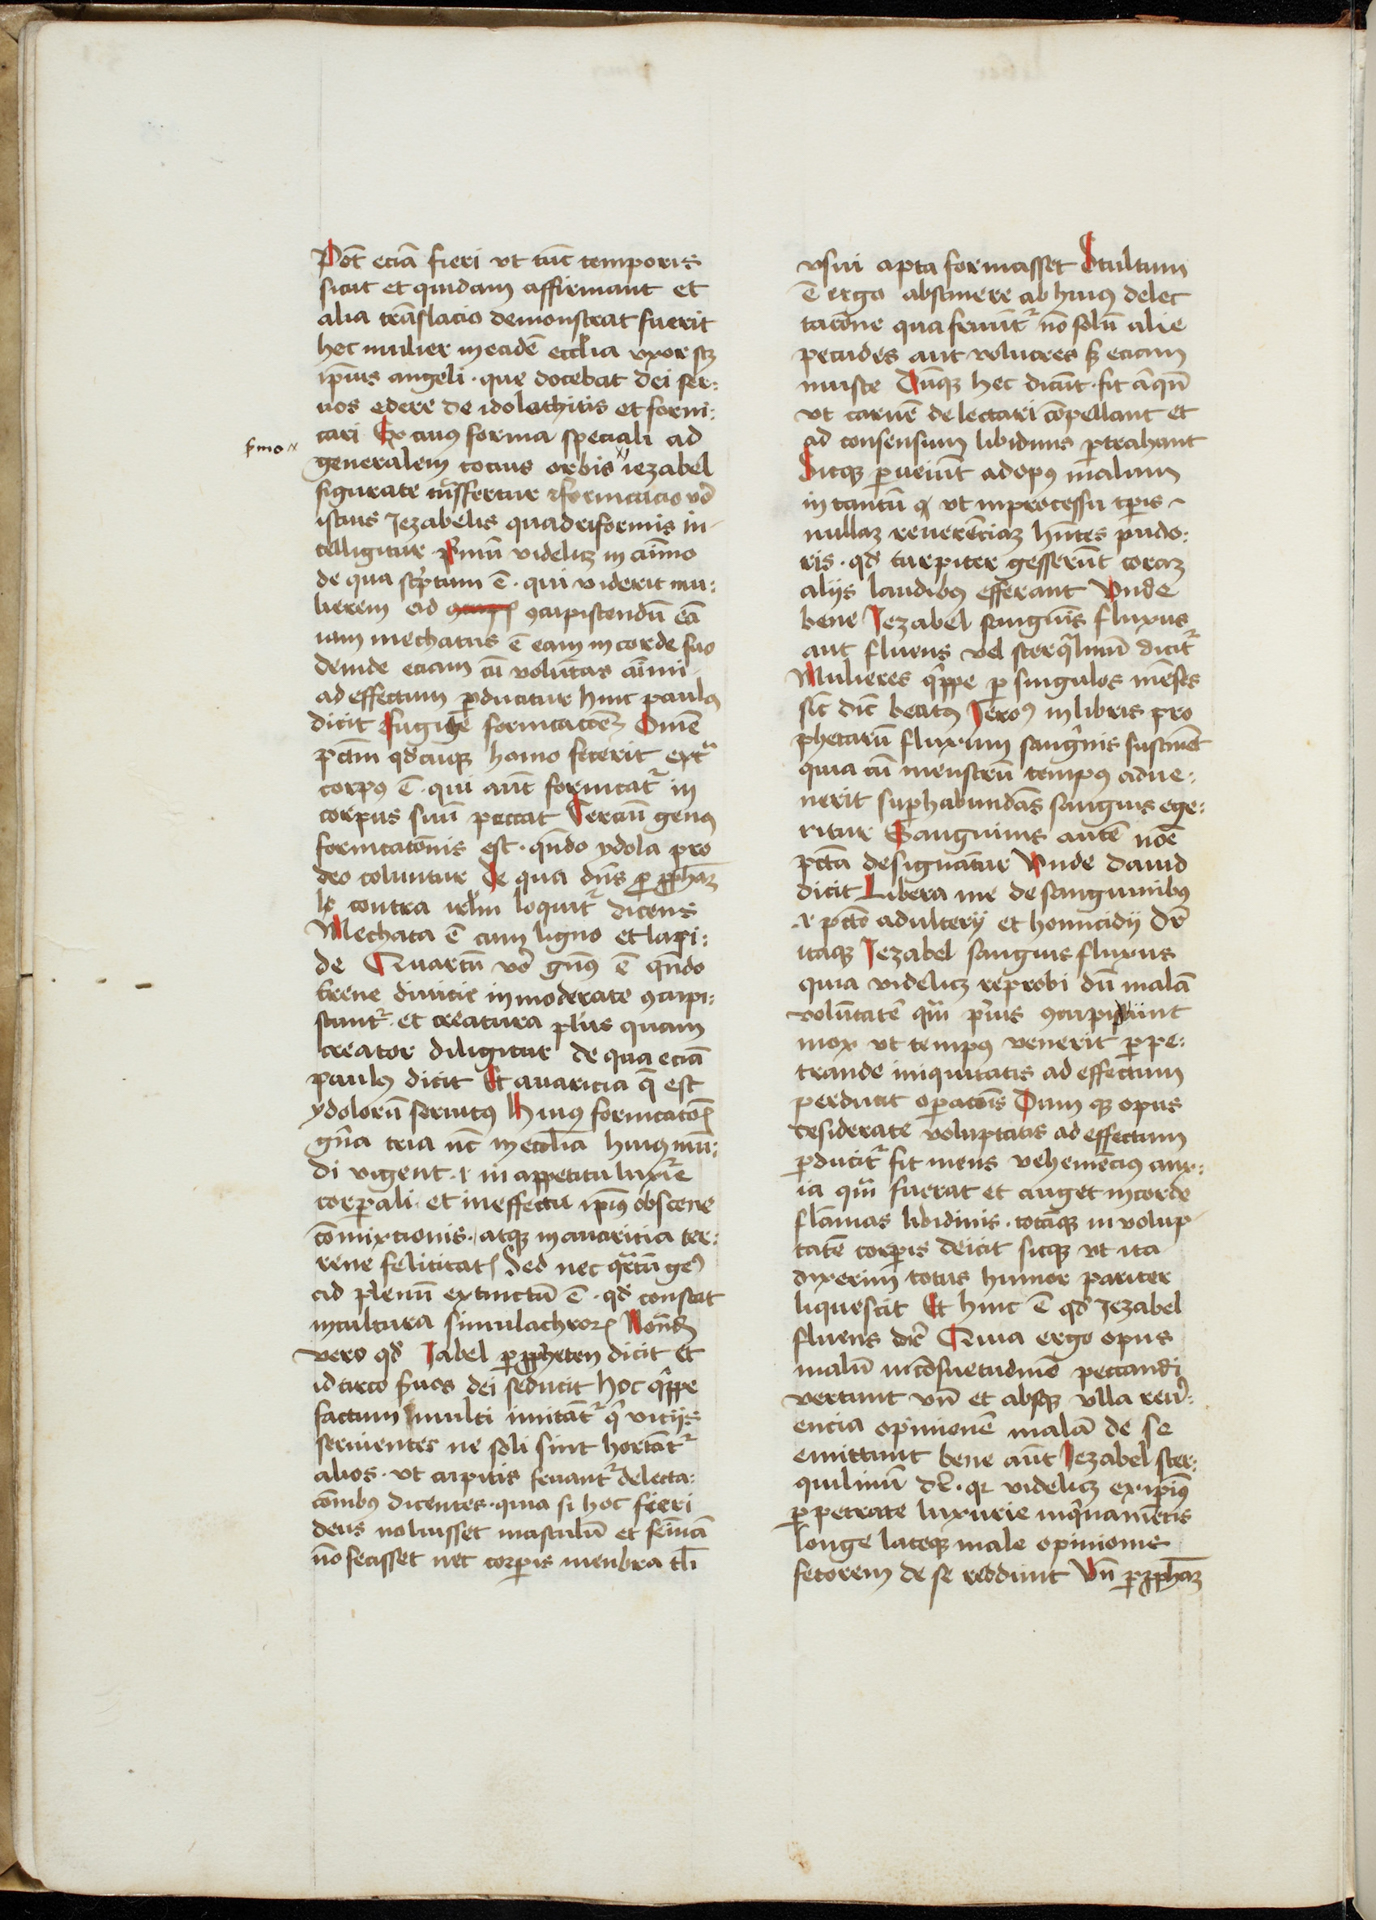 Pot̄ eciā fieri vt tūc temporis
sicut et quidam affirmant et
alia trāslacio demonstrat fuerit
hec mulier in eadē eccl̄ia vxor scꝫ
ip̄ius angeli · que docebat dei ser:
uos edere de idolothitis et forni:
cari Ex cuiꝰ forma speciali ad
generalem tocius orbis iezabel
figurate trāsffertur & fornicacio vō
istius Jezabelis quadriformis in-
telligitur P̄mū videlicꝫ in aīmo
de qua sc̄ptum ē · qui viderit mu:
lierem ad ꝯcupiscendū eā
iam mechatus ē eam in corde suo
deinde eciam cū volūtas aīmi
ad effectum ꝑducitur hinc paulꝰ
dicit Fugite fornicacōeꝫ Omē
pctm̄ qd̄cūqꝫ homo fecerit ext̄
corpꝰ ē · qui aūt fornicatͬ in
corpus suū peccat Terciū genꝰ
fornicacōnis est · qn̄do ydola pro
deo coluntur De qua dn̄s ꝑ ꝓph̄aꝫ
contra irl̄m loquitͬ dicens
Mechata ē cum ligno et lapi:
de Quartū vō gn̄ꝰ ē qn̄do
terrene diuicie inmoderate ꝯcupi:
scuntͬ · et creatura plus quam
creator diligitur de qua eciā
paulꝰ dicit Et auaricia q̄ est
ydolorū seruitꝰ Huiꝰ fornicacōꝭ
gn̄a tria nc̄ in eccl̄ia huiꝰ mū:
di vigent · r in appetitu luxͬie
corꝑali · et in effectu ip̄ius obscene
cōmixtionis · atqꝫ in auaricia ter:
rene felicitatꝭ Sed nec qͬtū geꝰ
ad plenū extinctū ē · qd̄ constat
in cultura simulachrorꝭ Nōnd
vero qd̄ Jabel ꝓpheten dicit et
idcirco ẜuos dei seducit hoc qͥppe
factum multi imitātͬ qͥ vicijs
seruientes ne soli sint hortātͬ
alios · vt cupitis fruantͬ delecta:
cōnibꝰ dicentes · quia si hoc fieri
deus noluisset masculū et femīā
nō fecisset nec corꝑis menbra tl̄i
vsui apta formasset Stultum
ē ergo abstinere ab huiꝰ delec
tacōne qua fruūtͬ nō solū alie
pecudes aut volucres ẜ eciam
musce Cūqꝫ hec dicūt · fit aͥqn̄
vt carnē delectari cōpellant et
ad consensum libidinis ꝑtrahant
Sicqꝫ ꝑueiūt ad opꝰ malum
in tantū qꝫ vt in processu tꝑis
nullaꝫ reuerēciaꝫ hn̄tes pudo:
ris · qd̄ turpiter gesserūt coraꝫ
alijs laudibꝰ efferant Vnde
bene Jezabel sangnīs fluxus
aut fluens vel sterqͥliniū dicitͬ
Mulieres qͥppe ꝑ singulos mēses
sic̄ dic̄ beatꝰ Jeroꝰ in libris pro
phetarū fluxum sangͥnis sustinēt
quia cū menstrū tempꝰ adue:
nerit suꝑhabundās sanguis ege:
ritur Sanguinis autē noīe
pctā designātur Vnde dauid
dicit Libera me de sanguinibꝰ
·r· pctō adulterij et homicidij dr̄
itaqꝫ Jezabel sanguis fluxus
quia videlicꝫ reprobi dū malā
volūtatē qͣm pͥus ꝯcupiūnt
mox vt tempꝰ venerit ꝑpe:
trande iniquitatis ad effectum
perducūt oꝑacōis Cum qꝫ opus
desiderate voluptatis ad effectum
ꝑducitͬ fit mens vehemēcius anx:
ia qͣm fuerat et auget in corde
flāmas libidinis · totāqꝫ in volup
tatē corꝑis deicit sicqꝫ vt ita
dixerim totus humor pariter
liquescit Et hinc ē qd̄ Jezabel
fluens dr̄ Quia ergo opus
malū in cōsuetudinē peccandi
vertunt vn̄ et absqꝫ vlla reuͬ:
encia opinionē malā de se
emittunt bene aūt Jezabel ster:
quiliniū dr̄ · qꝛ videlicꝫ ex ip̄ius
ꝑpetrate luxurie inqͥnamētis
longe lateqꝫ male opinionis
fetorem de se reddunt Vn̄ ꝑ ꝓph̄aꝫ